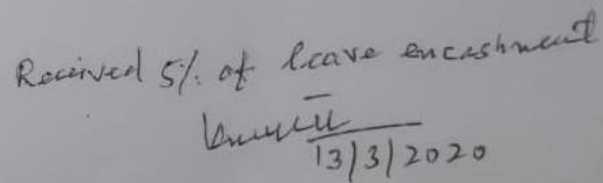 Received 5% of leave encashment
13/3/2020